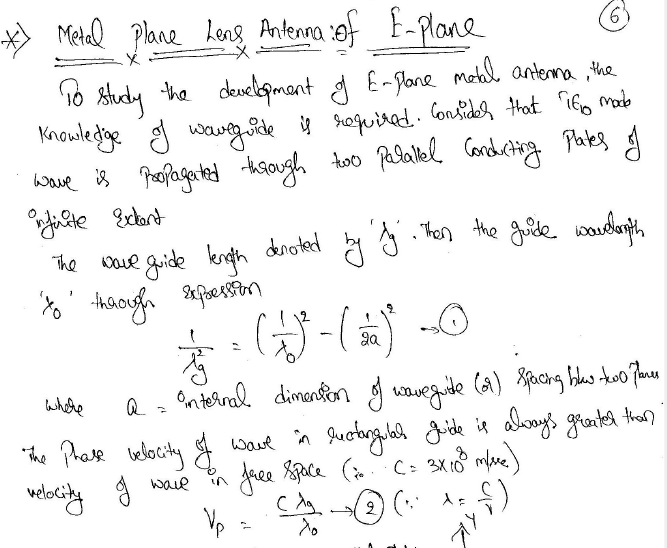 *) Metal Plane Lens Antenna :of E-plane 6
To study the development of E-plane metal antenna, the
Knowledge of waveguide is required. Consider that TE10 mode
wave is Propagated through two Parallel Conducting Plates of
infinite Extent
The wave guide length denoted by 'λg'. Then the guide wavelength
'λ0' through expression
1/λg² = (1/λ0)² - (1/2a)² → 1
where a = internal dimension of waveguide (or) Spacing b/w two Planes
The Phase velocity of wave in rectangular guide is always greater than
velocity of wave in free Space (∵ C = 3x10⁸ m/sec)
Vp = Cλg/λ0 → 2 (∵ λ = C/V)